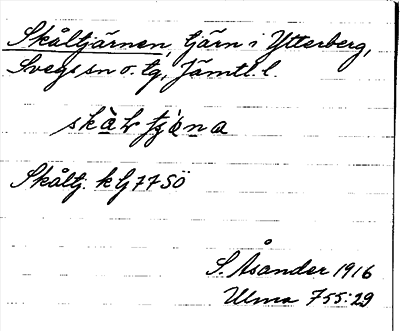 Skåltjärnen, tjärn i Ytterberg,
Svegs sn o. tg, Jämtl. l.
skàltjóna
Skåltj. kbj 77 SÖ
S. Åsander 1916
Ulma 755:29